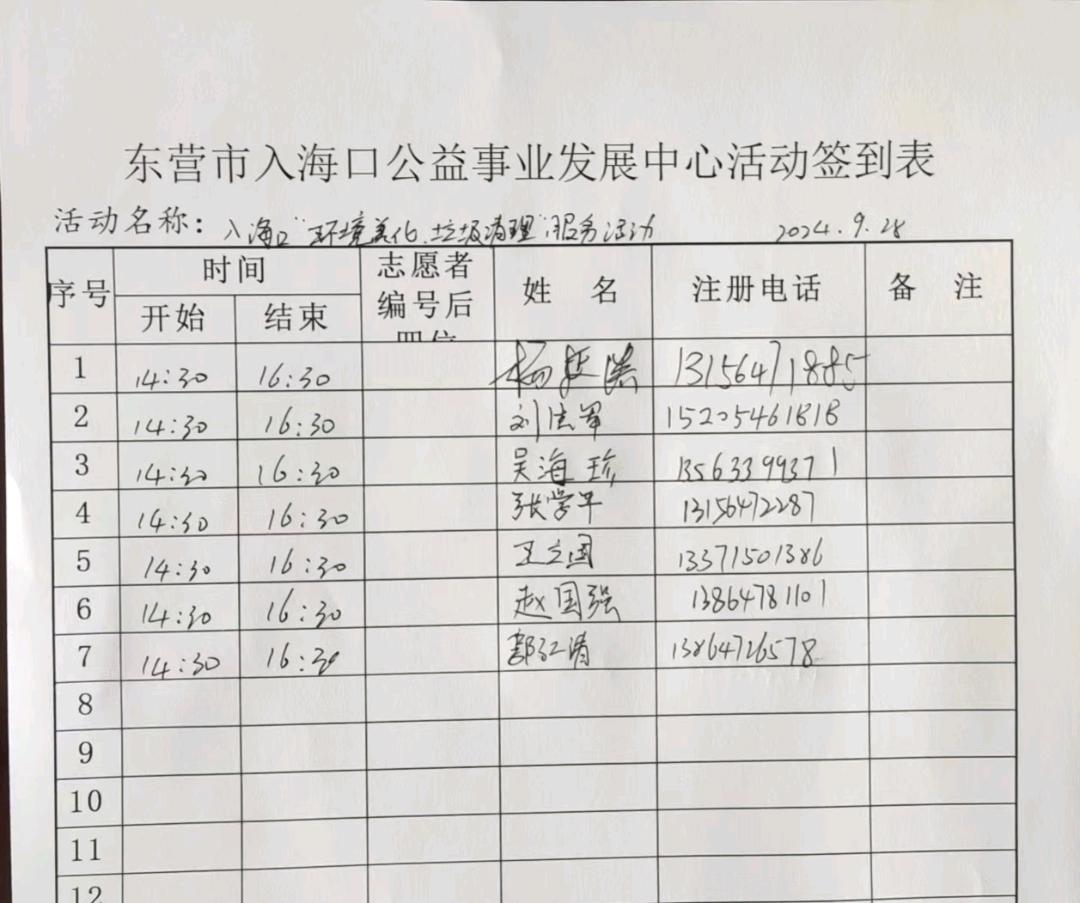 东营市入海口公益事业发展中心活动签到表
活动名称：入海口"环境美化、垃圾清理"服务活动 2024.9.28
序号 时间 志愿者编号后四位 姓 名 注册电话 备 注
开始 结束
1 14:30 16:30 杨 13156471885
2 14:30 16:30 刘法军 15205461818
3 14:30 16:30 吴海珍 13563399371
4 14:30 16:30 张学平 13156472287
5 14:30 16:30 王立国 13371501386
6 14:30 16:30 赵国强 13864781101
7 14:30 16:30 郭江清 13864726578
8
9
10
11
12